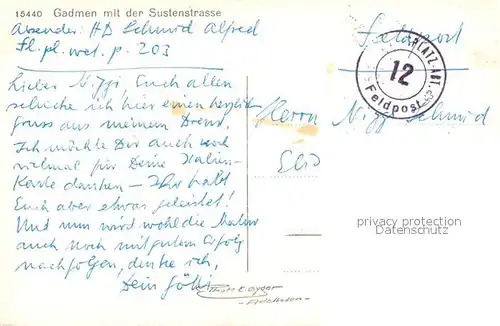 15440 Gadmen mit der Sustenstrasse
Absender: HD Schmid Alfred
Fl. pl. wet. p. 203
Feldpost
PLATZ-ABT.
12
Feldpost
Lieber Niggi, Euch allen
schicke ich hier einen herzlichen
Gruss aus meinem Dienst.
Ich möchte Dir auch noch
vielmal für Deine Italien-
Karte danken – Ihr habt
Euch aber etwas geleistet!
Und nun wird wohl die Matur
auch noch mit gutem Erfolg
nachfolgen, denke ich,
Dein Götti
Herrn Niggi Schmid
privacy protection
Datenschutz
Adelboden